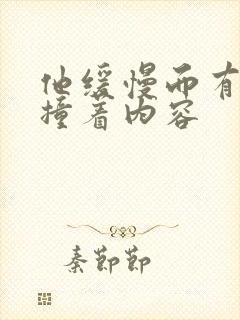 他缓慢而有
撞着内容
秦莭莭